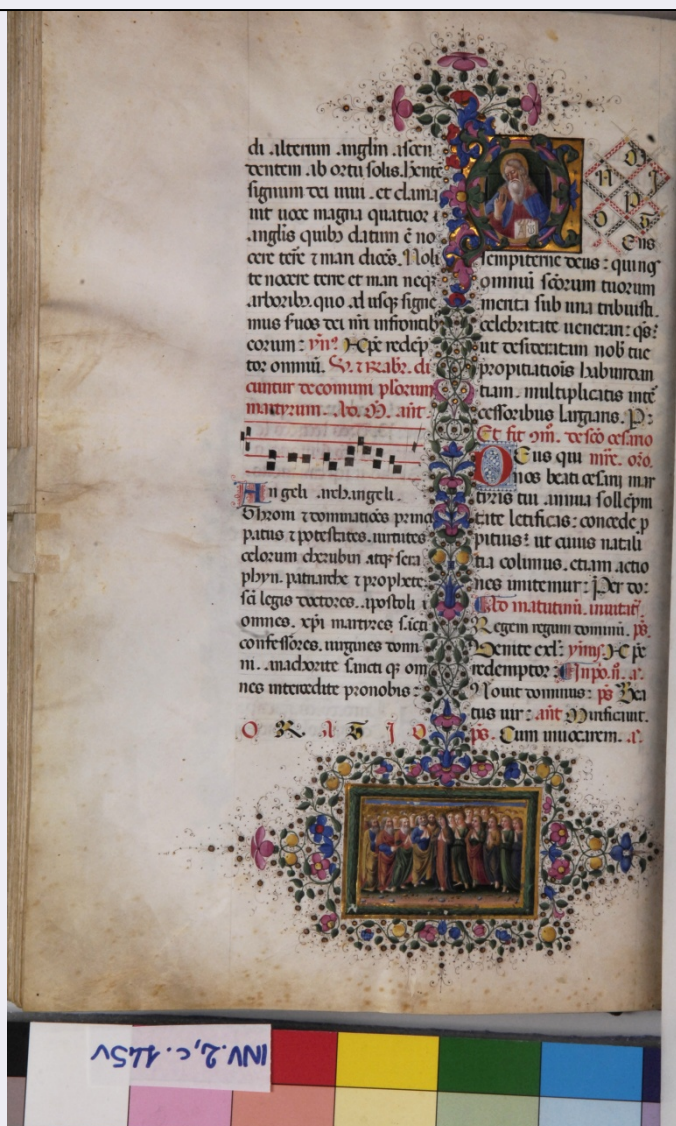 di .alterum .anglm .ascen
dentem .ab ortu solis. hente
signum dei uiui . et clama
uit uoce magna quatuor
.anglis quibȝ datum ē no
cere terre ⁊ mari dicēs. Noli
te nocere terre et mari neqȝ
.arboribȝ. quo .ad usqȝ signe
mus suos dei nri infrontibȝ
eorum : ymꝰ Xp̄e redēp
tor omniū. ℣. ⁊ Rabr. di
cuntur decomuni plsorum
martyrum. .ad. M. ant.
Angeli .archangeli .
throni ⁊ dominatiōes princi
patus ⁊ potestates. uirtutes
celorum cherubin atqȝ sera
phyn. patriarche ⁊ prophete.
sci legis doctores. .apostoli
omnes. xp̄i martyres sancti
confessores. uirgines domi
ni. .anachorite sancti qȝ om
nes intercedite pronobis :
O R A T I O
OMIPS
Eus
sempiterne deus : quinos
omniū scorum tuorum
merita sub una tribuisti.
celebritate uenerari : qs:
ut desideratam nob tue
propitiatiōis habundan
tiam. multiplicatis inte
cessoribus largiaris. P:
Et fit 9m. de sco cesario
DEus qui mre. oro.
nos beati cesarij mar
tyris tui .annua sollēpni
tate letificas : concede p
pitius : ut cuius natali
tia colimus. etiam actio
nes imitemur : Per do:
Ad matutinū. inuitat.
Regem regum dominū. ps.
Uenite exl: ymꝰ Xp̄e
redemptor : Inpo. n. a.
Nouit dominus : ps Bea
tus uir : ant Mirificauit.
ps. Cum inuocarem. .a.
INV. 2, c. 145v